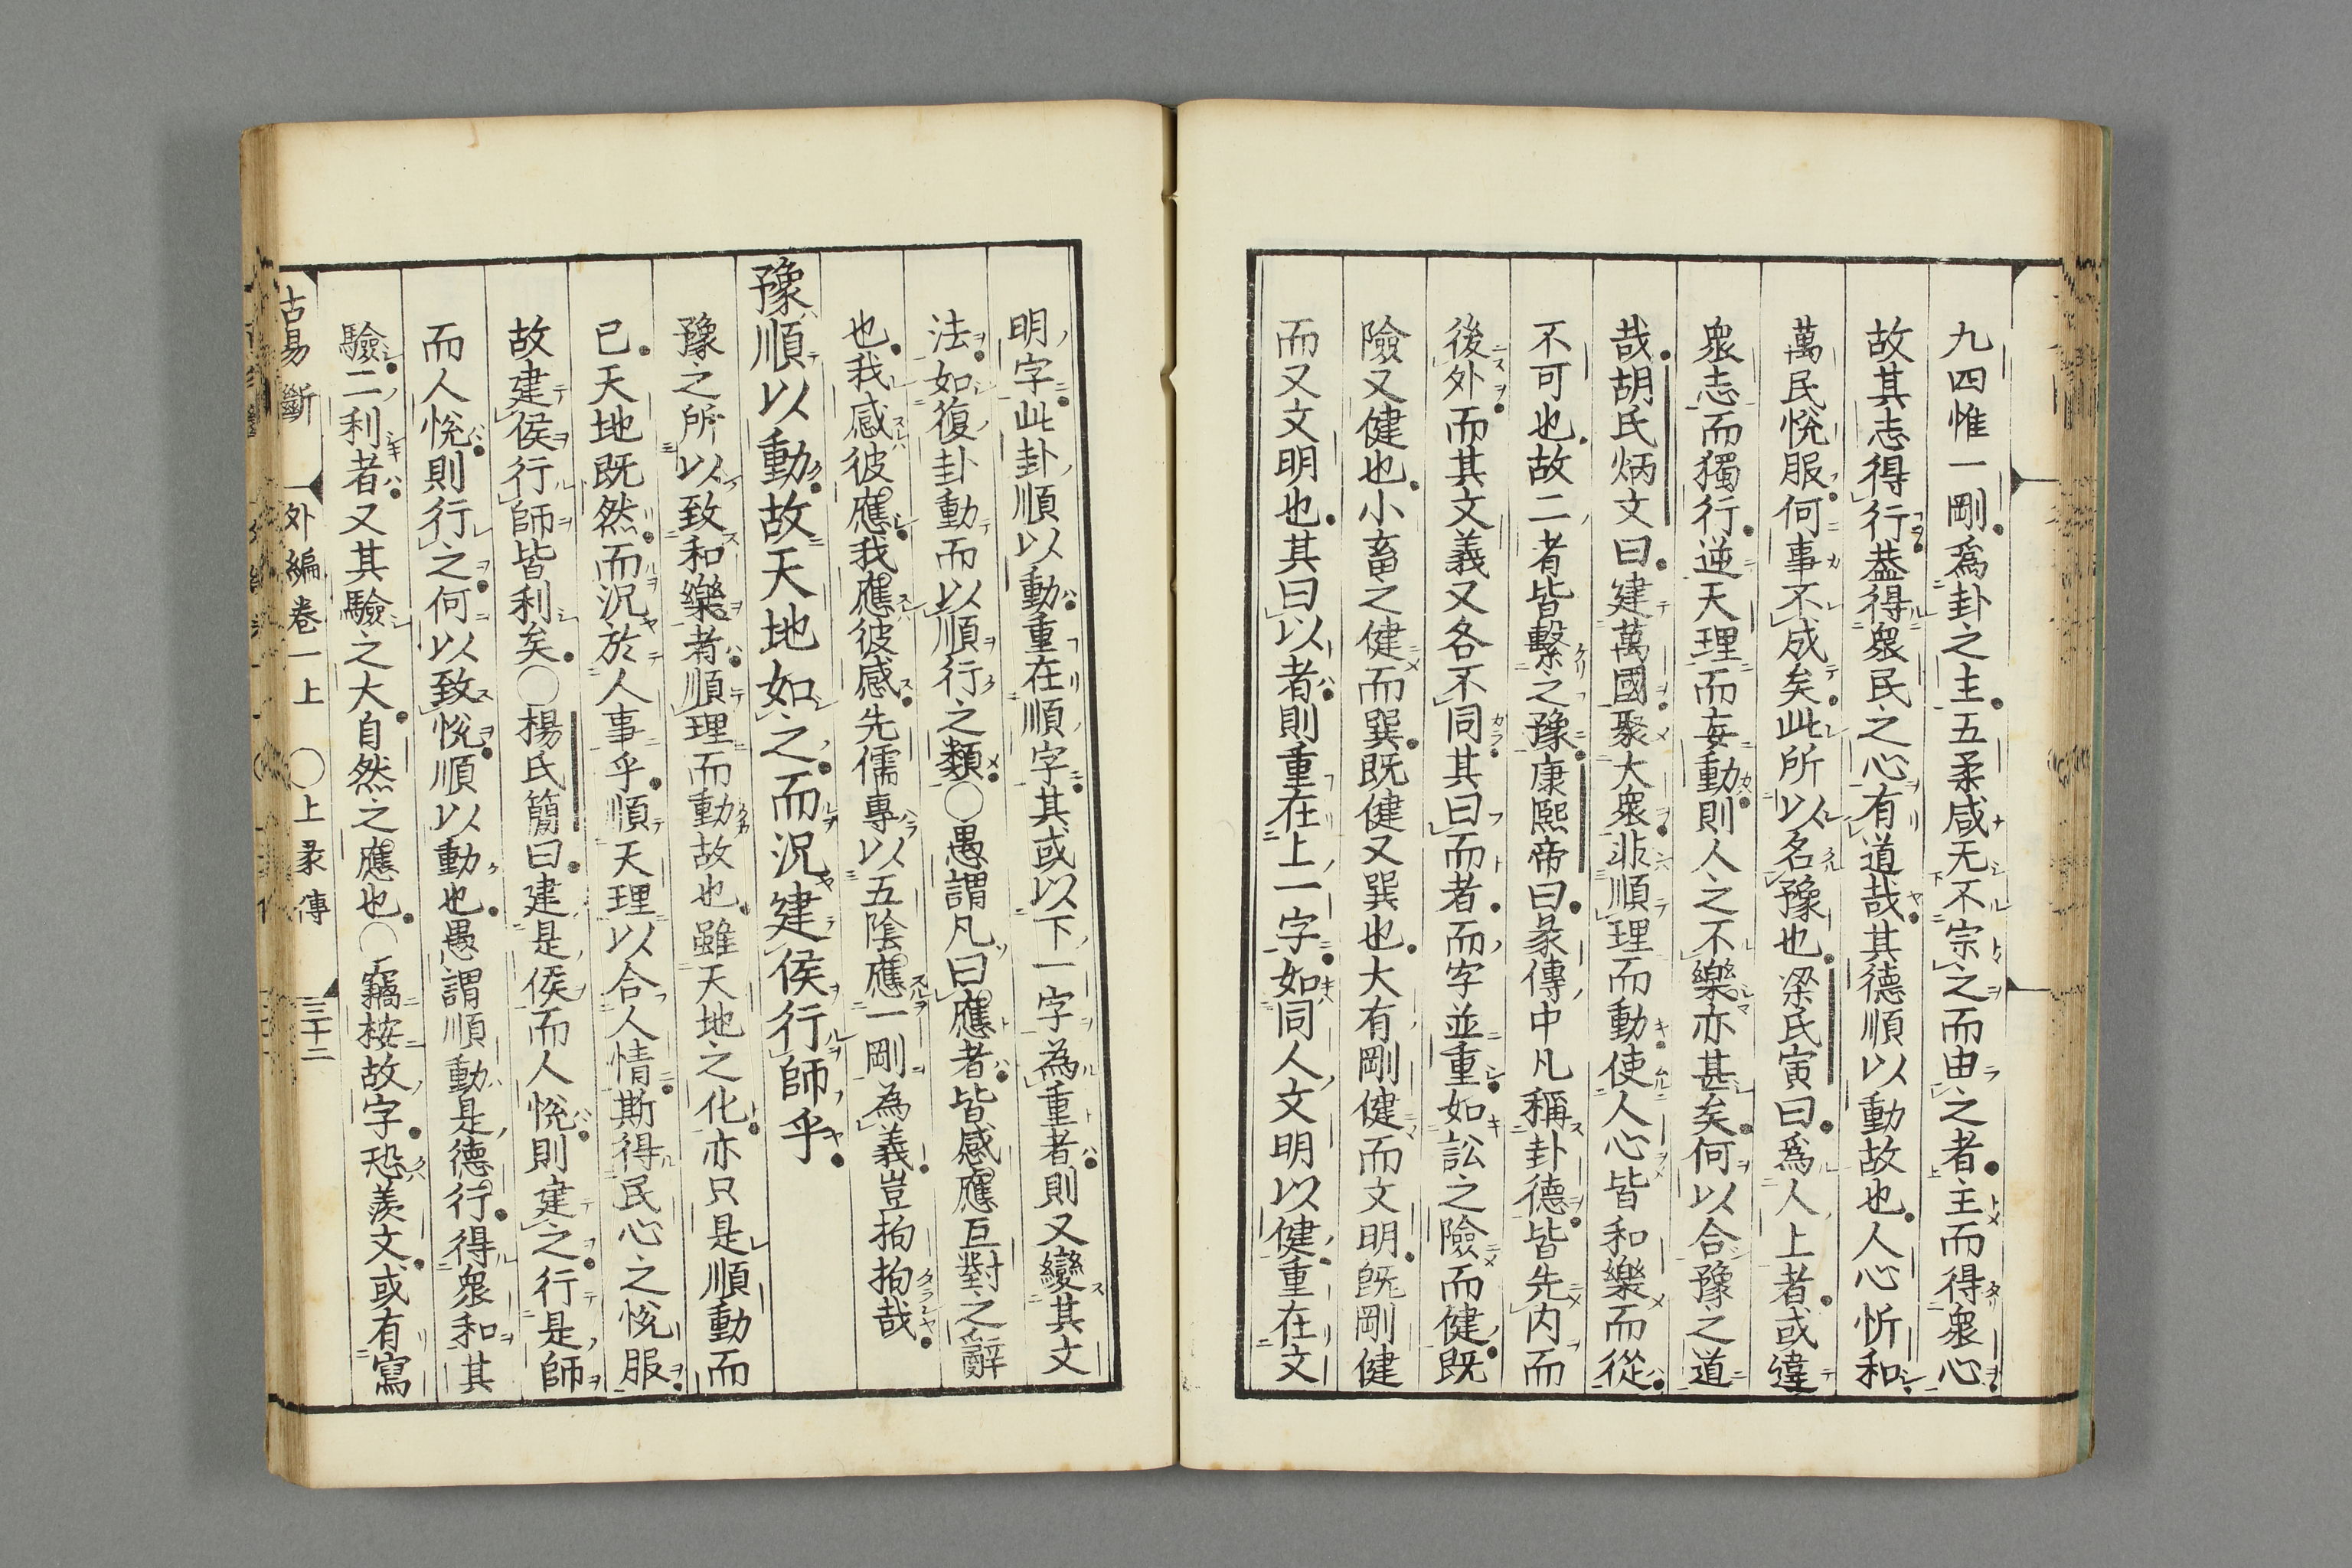 九四惟一剛爲卦之主五柔咸无不宗之而由之者主而得衆心
故其志得行葢得衆民之心有道哉其德順以動故也人心忻和
萬民悅服何事不成矣此所以名豫也梁氏寅曰爲人上者或違
衆志而獨行逆天理而妄動則人之不樂亦甚矣何以合豫之道
哉胡氏炳文曰建萬國聚大衆非順理而動使人心皆和樂而從
不可也故二者皆繫之豫康熙帝曰彖傳中凡稱卦德皆先内而
後外而其文義又各不同其曰而者而字並重如訟之險而健既
險又健也小畜之健而巽既健又巽也大有剛健而文明既剛健
而又文明也其曰以者則重在上一字如同人文明以健重在文
明字此卦順以動重在順字其或以下一字為重者則又變其文
法如復卦動而以順行之類〇愚謂凡曰應者皆感應互對之辭
也我感彼應我應彼感先儒專以五陰應一剛為義豈拘拘哉
豫順以動故天地如之而況建侯行師乎
豫之所以致和樂者順理而動故也雖天地之化亦只是順動而
已天地既然而況於人事乎順天理以合人情斯得民心之悅服
故建侯行師皆利矣〇楊氏簡曰建是侯而人悅則建之行是師
而人悅則行之何以致悅順以動也愚謂順動是德行得衆和其
驗二利者又其驗之大自然之應也〇竊桉故字恐羨文或有寫
古易斷 外編卷一上 〇上彖傳 三十二